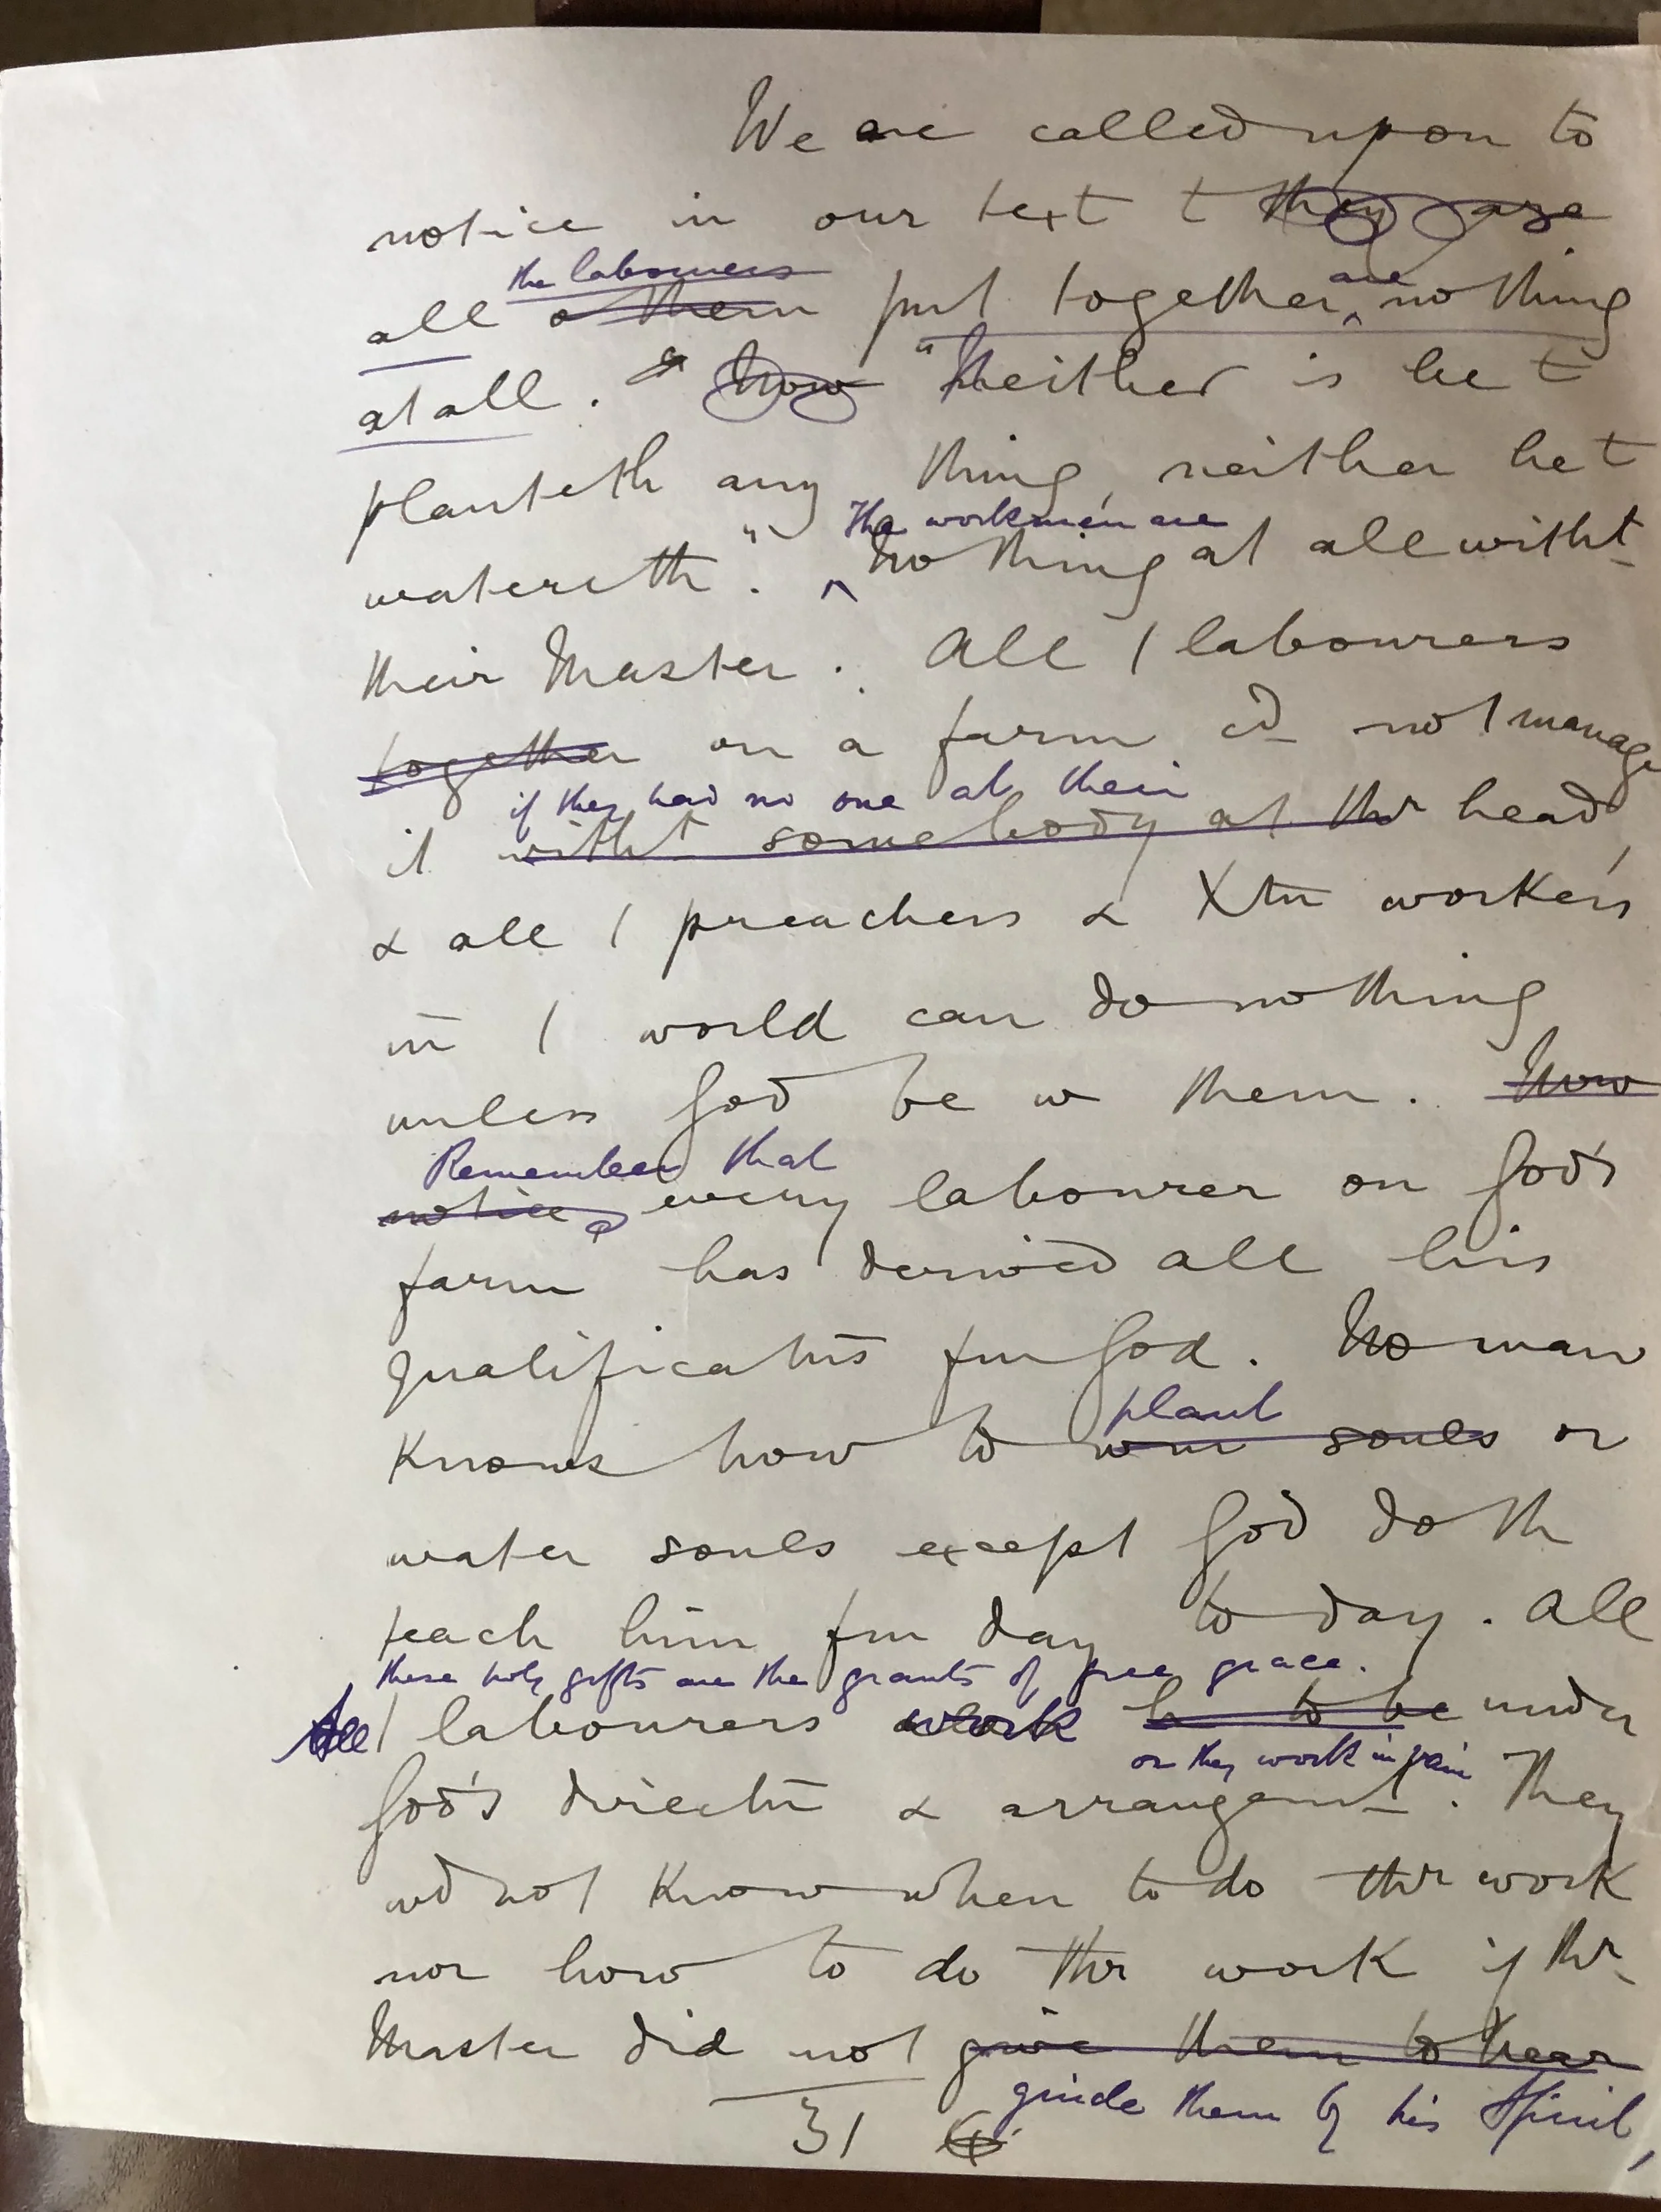 We are called upon to
notice in our text t they are
the labourers
are
all o them put together nothing
at all. & Now "Neither is he t
planteth any thing, neither he t
The workmen are
watereth". Nothing at all witht
their Master. All / labourers
together on a farm cd not manage
if they had no one at their
it witht somebody at thr head,
& all / preachers & Xtn workers
in / world can do nothing
unless God be w them. Now
Remember that
notice, every labourer on God's
farm has derived all his
qualificatns fm God. No man
plant
knows how to win souls or
water souls except God doth
teach him fm day to day. All
these holy gifts are the grants of free grace.
All / labourers work h to be under
or they work in vain
God's directn & arrangemt. They
wd not know when to do thr work
nor how to do thr work if thr
Master did not give them to hear
guide them by his Spirit,
31